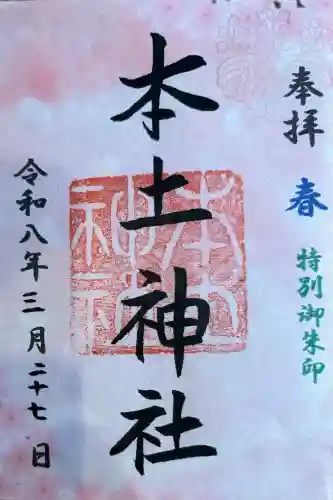 奉拝
春
特別御朱印
本土神社
本土神社
令和八年三月二十七日